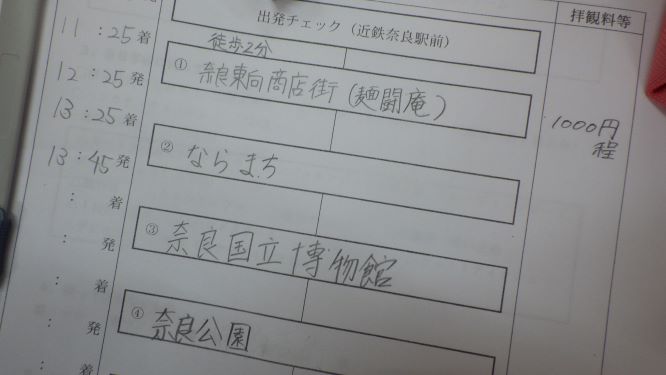 出発チェック（近鉄奈良駅前）
拝観料等
徒歩2分
11：25着
① 奈良東向商店街（麺闘庵）
12：25発
1000円
程
13：25着
② ならまち
13：45発
：着
③ 奈良国立博物館
：発
：着
④ 奈良公園
：発
：着